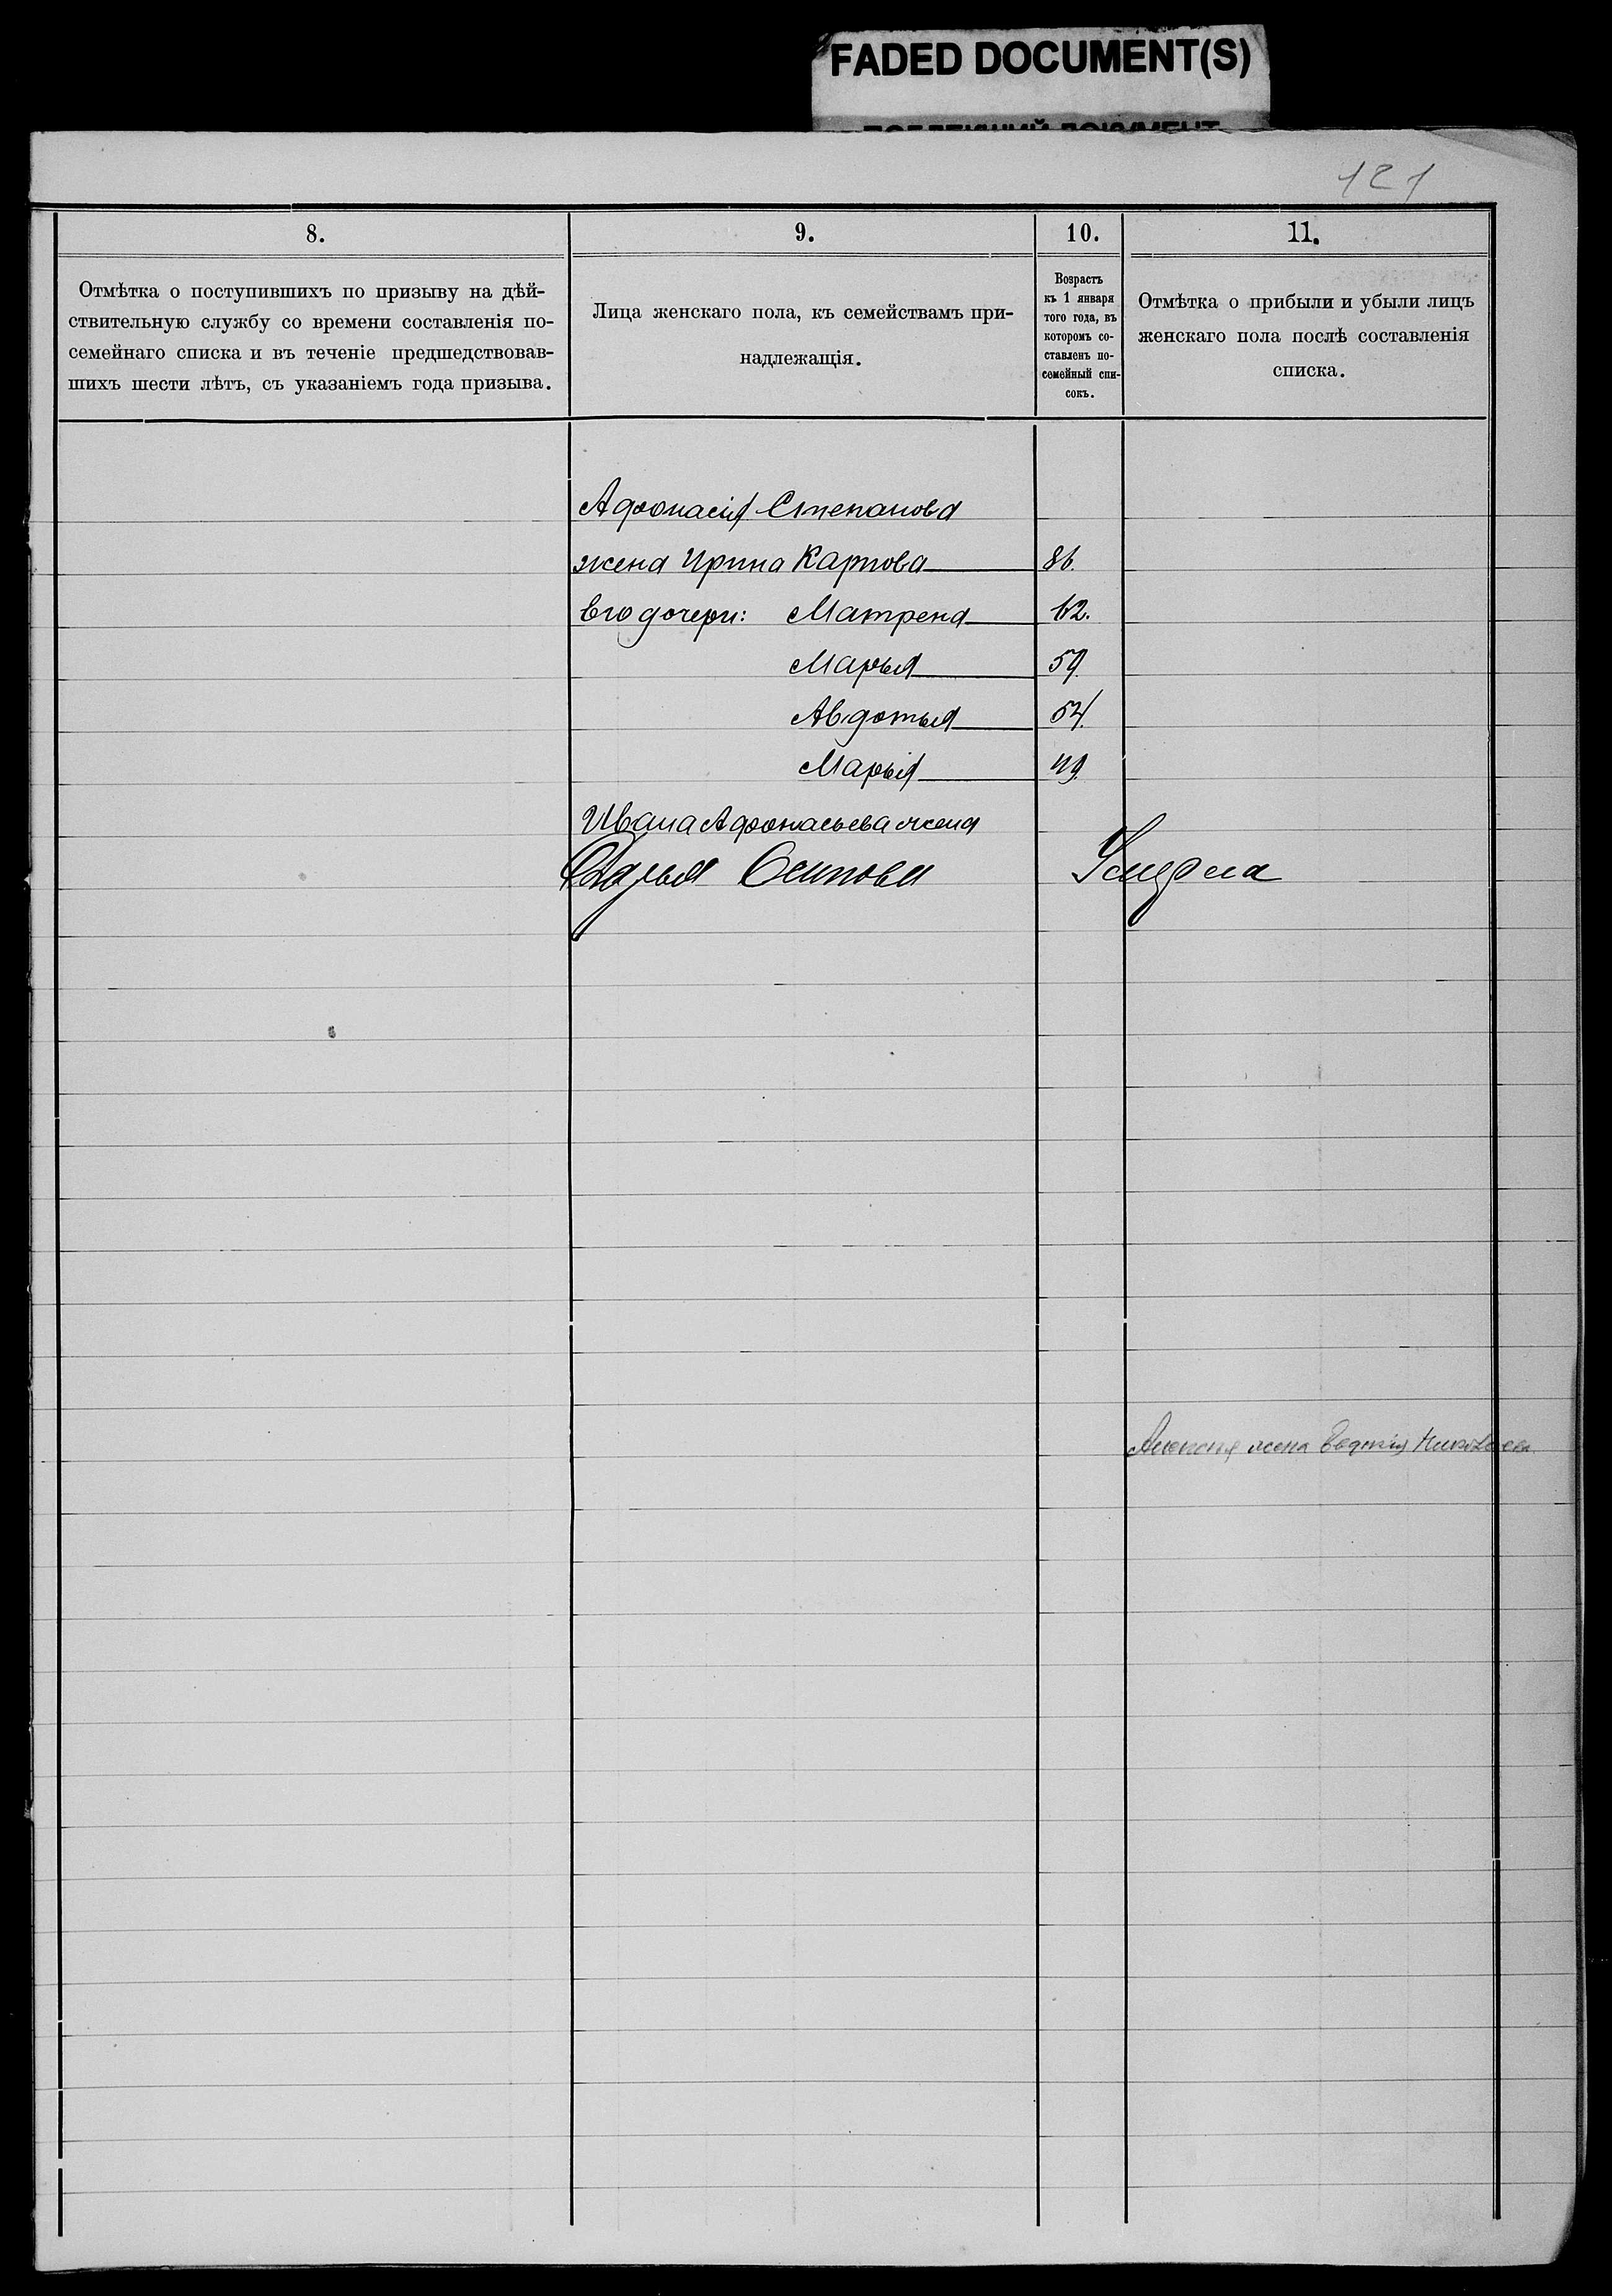 FADED DOCUMENT(S)
121
8.
9.
10.
11.
Отмѣтка о поступившихъ по призыву на дѣй-
ствительную службу со времени составленія по-
семейнаго списка и въ теченіе предшедствовав-
шихъ шести лѣтъ, съ указаніемъ года призыва.
Лица женскаго пола, къ семействамъ при-
надлежащія.
Возрастъ
къ 1 января
того года, въ
которомъ со-
ставленъ по-
семейный спи-
сокъ.
Отмѣтка о прибыли и убыли лицъ
женскаго пола послѣ составленія
списка.
Афонасія Степанова
жена Ирина Карпова 86.
Его дочери: Матрена 62.
Марья 59.
Авдотья 54.
Марья 49.
Ивана Афонасьева жена
Дарья Осипова Умерла
жена